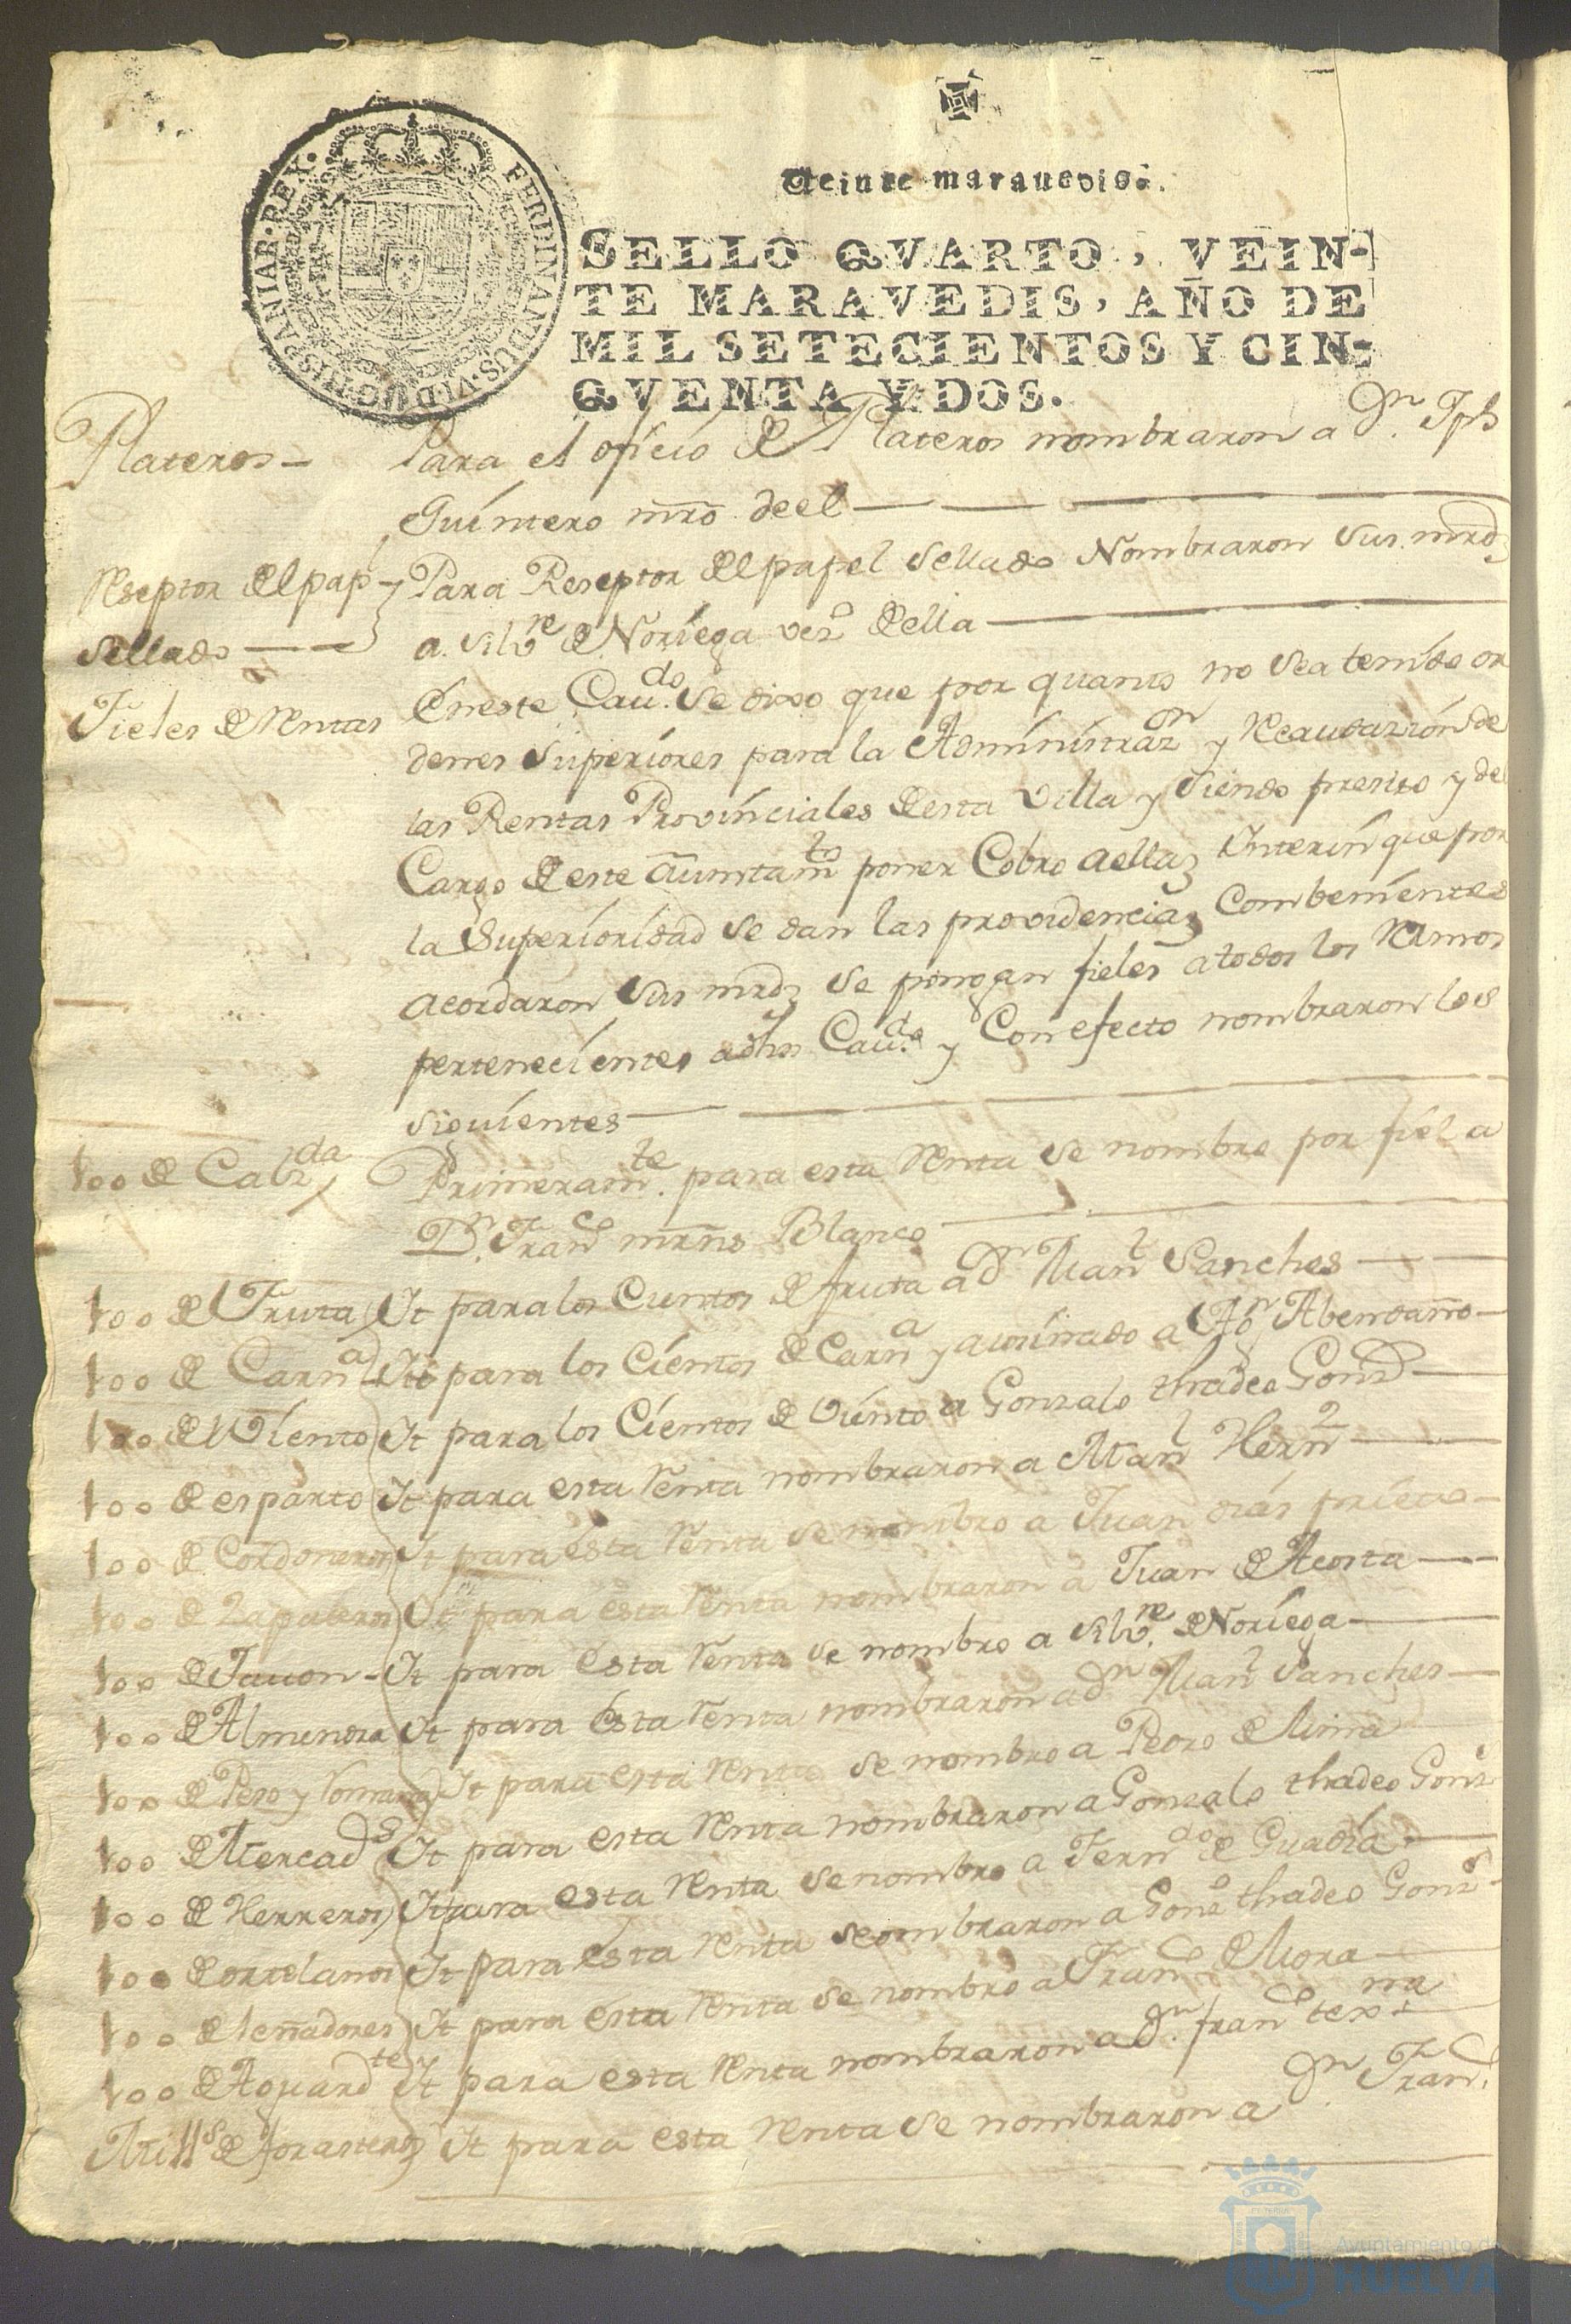 Veinte maravedis.
SELLO QVARTO, VEIN-
TE MARAVEDIS, AÑO DE
MIL SETECIENTOS Y CIN-
QVENTA Y DOS.
FERDINANDUS·VI·D·G·HISPANIAR·REX·
Plateros- Para el oficio de Plateros nombraron a Dn. Jph
Quintero mro deel
Reseptor del pap.l Para Reseptor del papel Sellado Nombraron Sus mrds
Sellado a Silv.re de Noriega vez.o della
Fieles de Rentas En este Cau.do Se dixo que por quanto no Sea tenido or
denes Superiores para la Administraz.on y Recaudazión de
las Rentas Provinciales desta Villa y Siendo presiso y de
Cargo de este aiuntam.to poner Cobro aellas Ynterin que por
la Superioridad Se dan las providencias Combenientes
acordaron Sus mrds Se pongan fieles a todos los Ramos
pertenecientes adhos Cau.do y Con efecto nombraron los
Siguientes
100 de Primeram.te para esta Renta Se nombro por fiel a
Dn. Fran.co mrns Blanco
100 de Fruta It para los Cientos de fruta a Dn Man.l Sanches
100 de Carn.a It para los Cientos de Carn.a y a Abendaño
100 de Viento It para los Cientos de Viento a Gonzalo thadeo Gonz
100 de esparto It para esta Renta nombraron a Man.l Hern.z
100 de Cordoneros It para esta Renta se nombro a Juan dias prieto
100 de Zapateros It para esta Renta nombraron a Juan de Acosta
100 de Jauon It para esta Renta se nombro a Silv.re de Noriega
100 de Almendra It para esta Renta nombraron a Dn Man.l Sanches
100 de Peso y Romana It para esta Renta se nombro a Pedro de
100 de Mercad.s It para esta Renta nombraron a Gonzalo thadeo Gonz
100 de Herreros It para esta Renta se nombro a Fern.do de Guadia
100 de ortelanos It para esta Renta nombraron a Gonz.o thadeo Gonz
100 de leñadores It para esta Renta se nombro a Fran.co de Mora
100 de Aguard.te It para esta Renta nombraron a Dn. fran.co
de forasteros It para esta renta se nombraron a Dn Fran.co
Ayuntamiento de
HUELVA